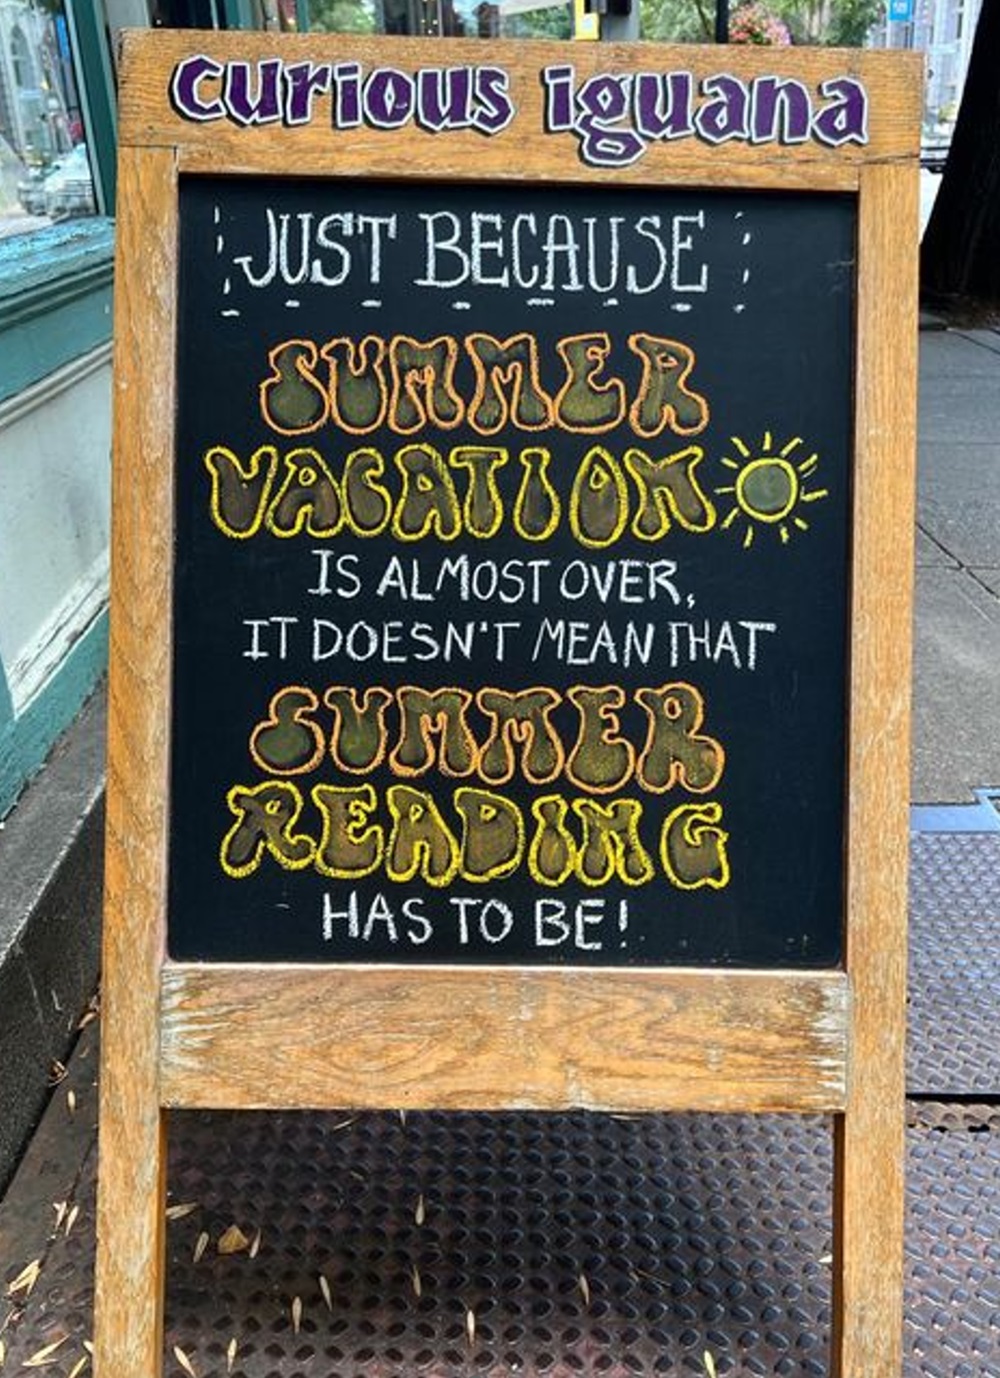 curious iguana
JUST BECAUSE
SUMMER
VACATION
IS ALMOST OVER,
IT DOESN'T MEAN THAT
SUMMER
READING
HAS TO BE!